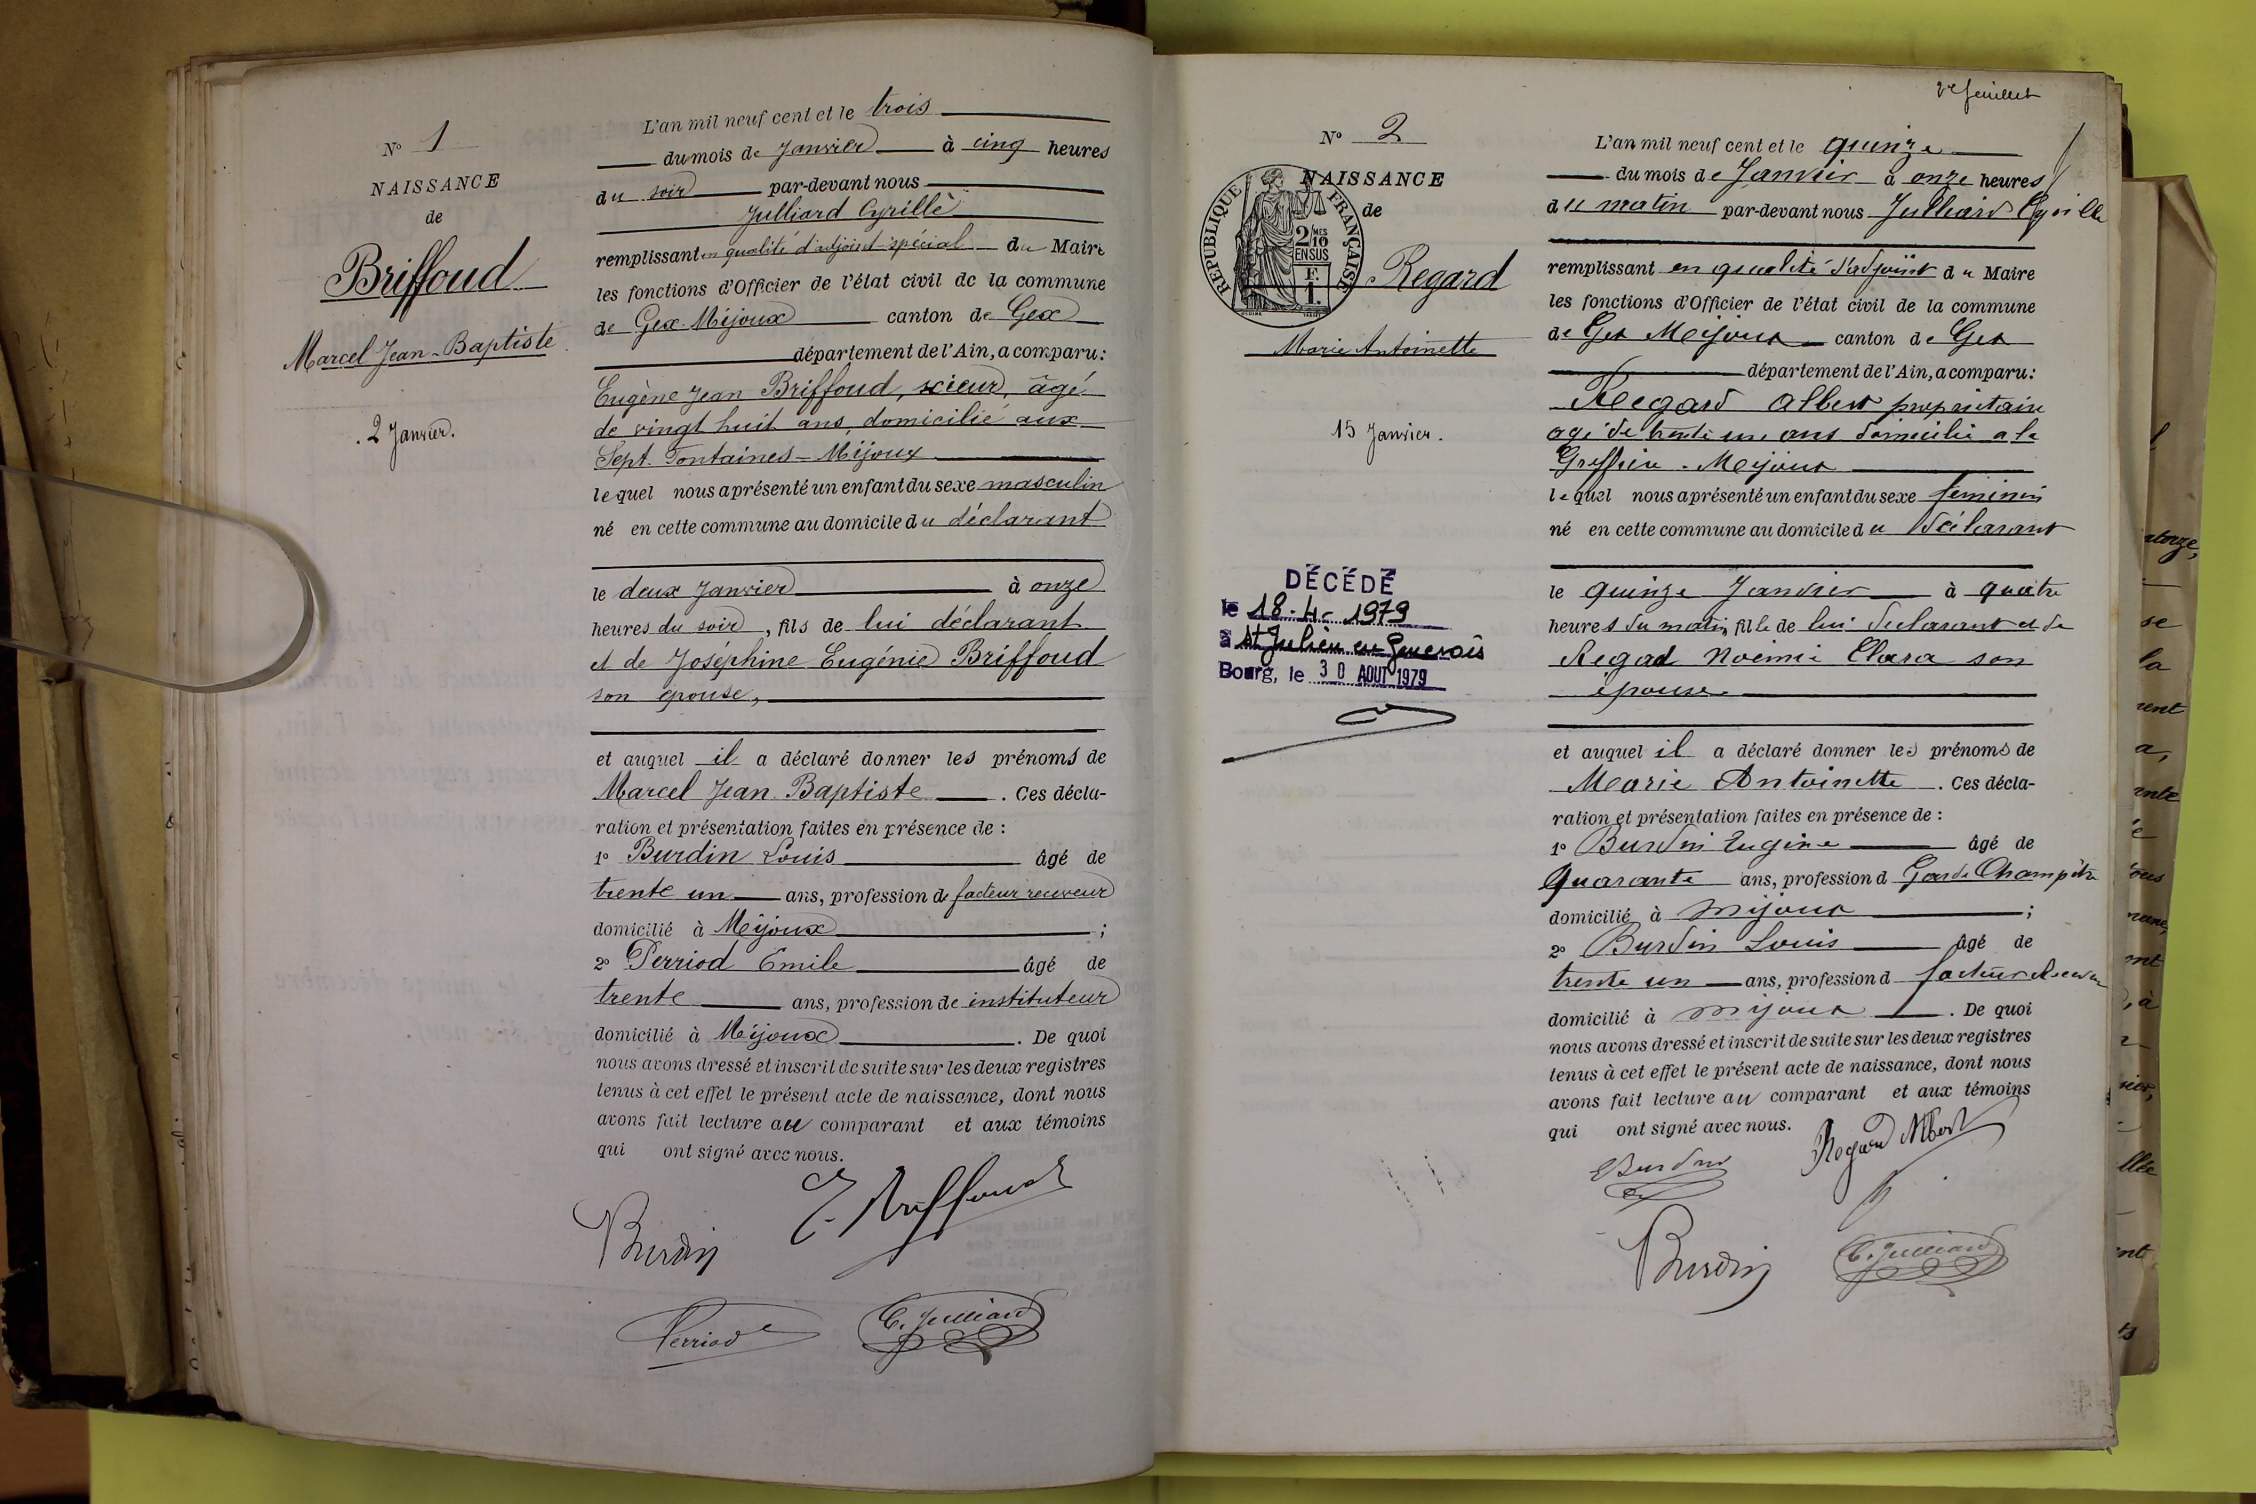 N° 1
NAISSANCE
de
Briffoud
Marcel Jean-Baptiste
2 Janvier.
L'an mil neuf cent et le trois
du mois de Janvier à cinq heures
du soir par-devant nous
Julliard Cyrille
remplissant en qualité d'adjoint spécial du Maire
les fonctions d'Officier de l'état civil de la commune
de Gex-Mijoux canton de Gex
département de l'Ain, a comparu:
Eugène Jean Briffoud, scieur, âgé
de vingt huit ans, domicilié aux
Sept-Fontaines-Mijoux
lequel nous a présenté un enfant du sexe masculin
né en cette commune au domicile du déclarant
le deux Janvier à onze
heures du soir, fils de lui déclarant
et de Joséphine Eugénie Briffoud
son épouse,
et auquel il a déclaré donner les prénoms de
Marcel Jean Baptiste. Ces décla-
ration et présentation faites en présence de :
1° Burdin Louis âgé de
trente un ans, profession de facteur receveur
domicilié à Mijoux ;
2° Perriod Emile âgé de
trente ans, profession de instituteur
domicilié à Mijoux. De quoi
nous avons dressé et inscrit de suite sur les deux registres
tenus à cet effet le présent acte de naissance, dont nous
avons fait lecture au comparant et aux témoins
qui ont signé avec nous.
E. Briffoud
Burdin
Perriod
C. Julliard
2e feuillet
N° 2
NAISSANCE
de
RÉPUBLIQUE FRANÇAISE
2/10 MES
EN SUS
F.
1.
Regard
Marie Antoinette
15 Janvier.
DÉCÉDÉ
le 18-4-1979
à St Julien en Genevois
Bourg, le 30 AOUT 1979
L'an mil neuf cent et le quinze
du mois de Janvier à onze heures
du matin par-devant nous Julliard Cyrille
remplissant en qualité d'adjoint du Maire
les fonctions d'Officier de l'état civil de la commune
de Gex Mijoux canton de Gex
département de l'Ain, a comparu:
Regard Albert propriétaire
agé de trente un ans domicilié a la
Mijoux
lequel nous a présenté un enfant du sexe féminin
né en cette commune au domicile du déclarant
le quinze Janvier à quatre
heures du matin fille de lui déclarant et de
Regad Noémie Clara son
épouse
et auquel il a déclaré donner les prénoms de
Marie Antoinette. Ces décla-
ration et présentation faites en présence de :
1° Burdin Eugène âgé de
Quarante ans, profession d Garde Champêtre
domicilié à Mijoux ;
2° Burdin Louis âgé de
trente un ans, profession d facteur Receveur
domicilié à Mijoux. De quoi
nous avons dressé et inscrit de suite sur les deux registres
tenus à cet effet le présent acte de naissance, dont nous
avons fait lecture au comparant et aux témoins
qui ont signé avec nous.
Regard Albert
E Burdin
Burdin
C. Julliard